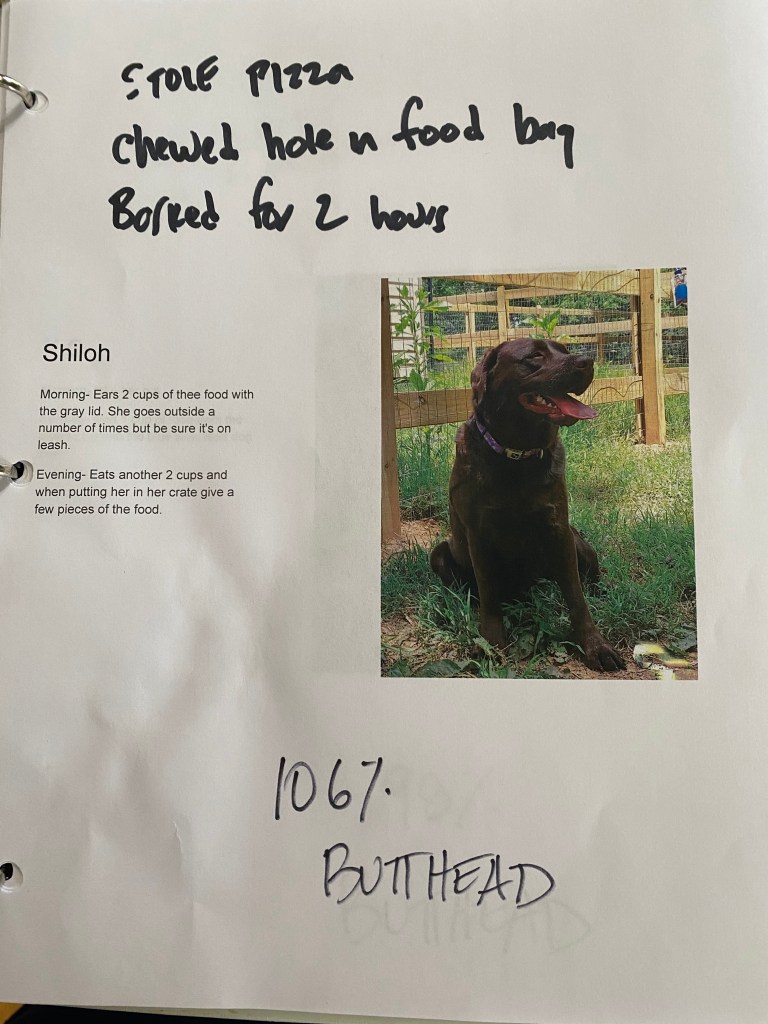 STOLE PIZZa
Chewed hole n food bag
Borked for 2 hours
Shiloh
Morning- Ears 2 cups of thee food with
the gray lid. She goes outside a
number of times but be sure it's on
leash.
Evening- Eats another 2 cups and
when putting her in her crate give a
few pieces of the food.
106%.
BUTTHEAD